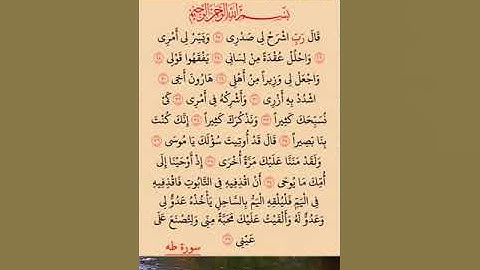 بسم الله الرحمن الرحيم
قَالَ رَبِّ اشْرَحْ لِى صَدْرِى ﴿٢٥﴾ وَيَسِّرْ لِى أَمْرِى
﴿٢٦﴾ وَاحْلُلْ عُقْدَةً مِنْ لِسَانِى ﴿٢٧﴾ يَفْقَهُوا قَوْلِى ﴿٢٨﴾
وَاجْعَلْ لِى وَزِيراً مِنْ أَهْلِى ﴿٢٩﴾ هَارُونَ أَخِى ﴿٣٠﴾
اشْدُدْ بِهِ أَزْرِى ﴿٣١﴾ وَأَشْرِكْهُ فِى أَمْرِى ﴿٣٢﴾ كَىْ
نُسَبِّحَكَ كَثِيراً ﴿٣٣﴾ وَنَذْكُرَكَ كَثِيراً ﴿٣٤﴾ إِنَّكَ كُنْتَ
بِنَا بَصِيراً ﴿٣٥﴾ قَالَ قَدْ أُوتِيتَ سُؤْلَكَ يَا مُوسَى ﴿٣٦﴾
وَلَقَدْ مَنَنَّا عَلَيْكَ مَرَّةً أُخْرَى ﴿٣٧﴾ إِذْ أَوْحَيْنَا إِلَى
أُمِّكَ مَا يُوحَى ﴿٣٨﴾ أَنِ اقْذِفِيهِ فِى التَّابُوتِ فَاقْذِفِيهِ
فِى الْيَمِّ فَلْيُلْقِهِ الْيَمُّ بِالسَّاحِلِ يَأْخُذْهُ عَدُوٌّ لِى
وَعَدُوٌّ لَهُ وَأَلْقَيْتُ عَلَيْكَ مَحَبَّةً مِنِّى وَلِتُصْنَعَ عَلَى
عَيْنِى ﴿٣٩﴾ سورة طه